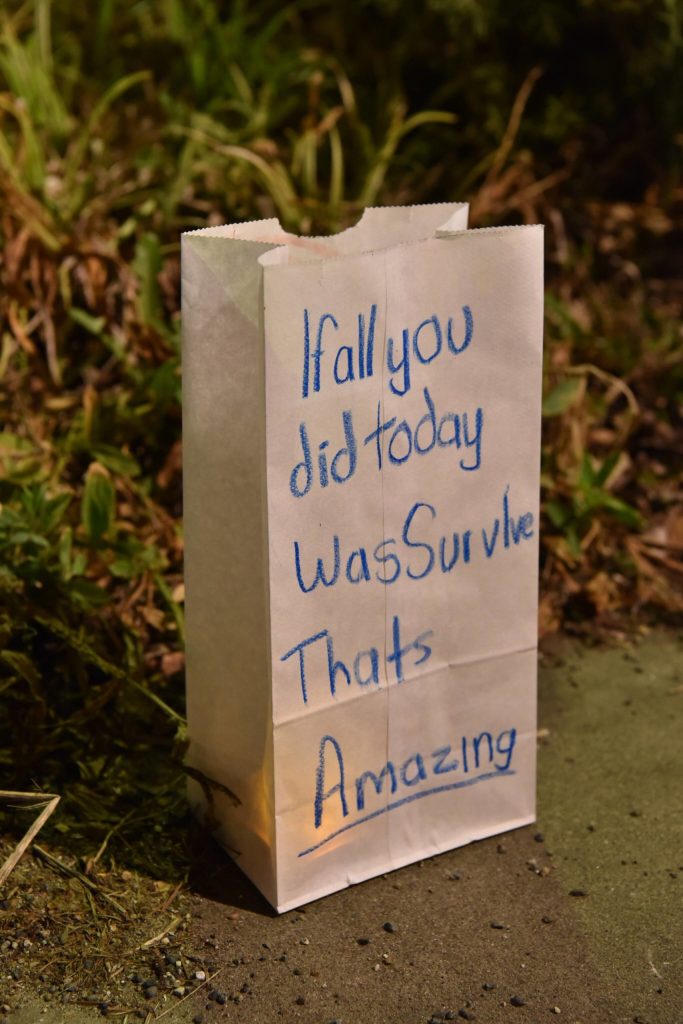 If all you
did today
Was Survive
Thats
Amazing